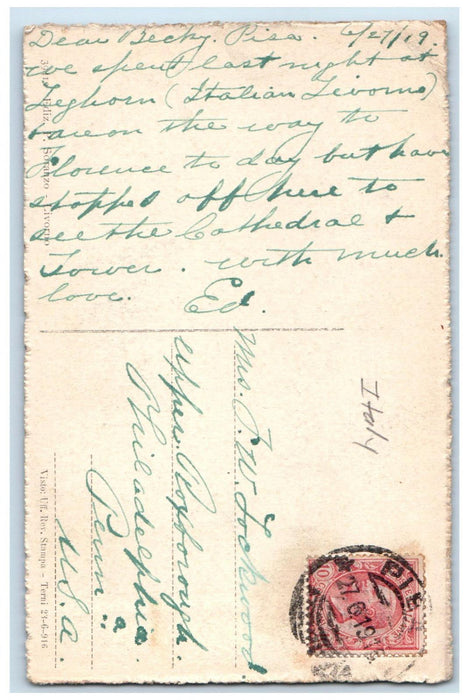 Dear Becky. Pisa. 6/27/19.
we spent last night at
Leghorn (Italian Livorno)
are on the way to
Florence to day but have
stopped off here to
see the Cathedral &
Tower. with much
love. Ed.
Mrs. J. W. Lockwood.
Upper Roxborough
Philadelphia
Penn"a
U.S.a.
Italy
Livorno
Visto: Uff. Rev. Stampa - Terni 23-6-916